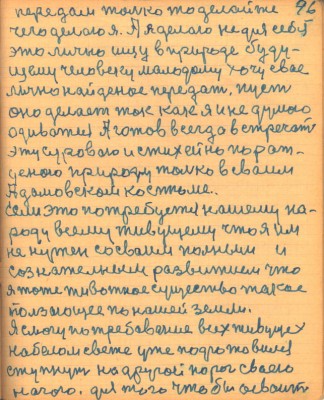 96
передам только то делайте
чего делаю я. А я делаю не для себя
это лично ищу в природе буду-
щему человеку молодому хочу свое
лично найденое передать, пусть
оно делает так как я и не думаю
одиватся А готов всегда встречать
эту суровою и стихейно пората-
ценою природу только в своим
Адамовском костьме.
если это потребуется нашему на-
роду всему живущему что я им
не нужен со своим полным и
сознательным развитием что
я тоже животное существо такое
ползающее по нашей земли.
Я смогу потребование всех живущех
на белом свете уже подготовился
ступнут на другой порог своего
нагого. для того чтобы освоит